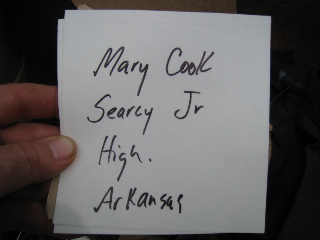 Mary Cook
Searcy Jr
High.
Arkansas